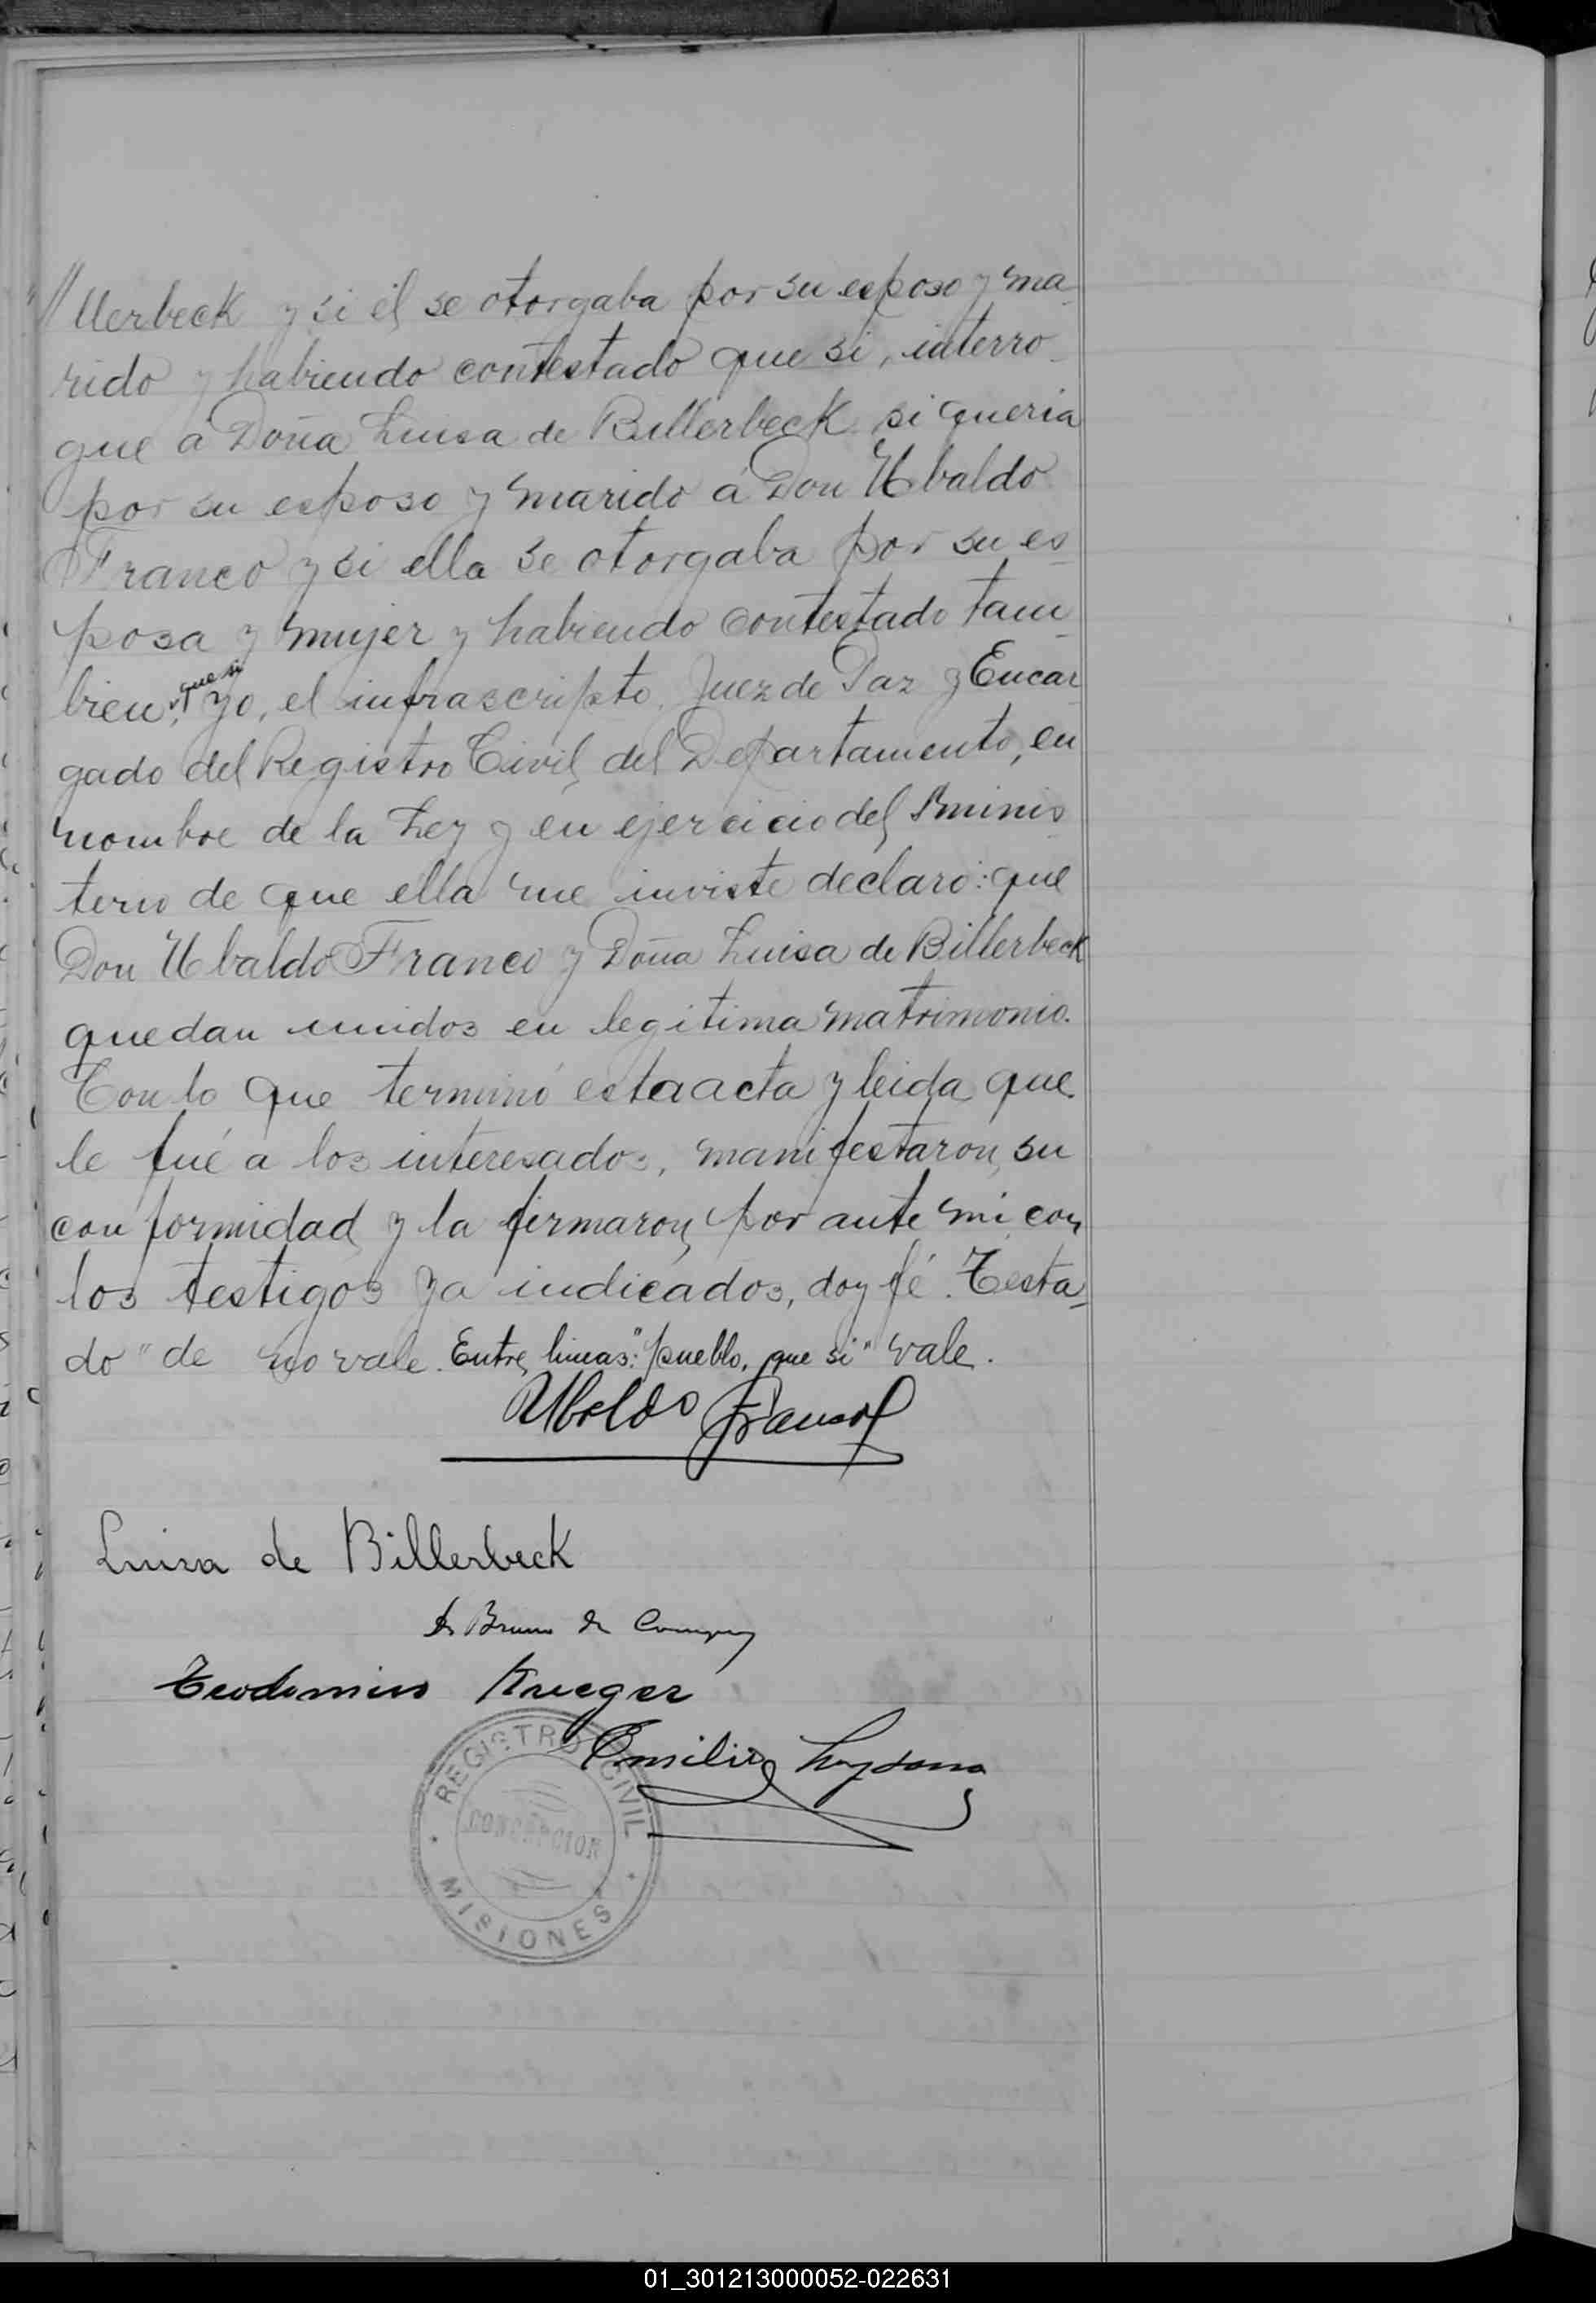 //llerbeck y si él se otorgaba por su esposo y ma-
rido y habiendo contestado que si, interro-
gue á Doña Luisa de Billerbeck si queria
por su esposo y marido á Don Ubaldo
Franco y si ella se otorgaba por su es-
posa y mujer y habiendo contestado tam-
que si
bien, yo, el infrascripto, Juez de Paz y Encar-
gado del Registro Civil del Departamento, en
nombre de la Ley y en ejercicio del minis-
terio de que ella me inviste declaro: que
Don Ubaldo Franco y Doña Luisa de Billerbeck
quedan unidos en legitima matrimonio.
Con lo que terminó esta acta y leida que
le fué a los interesados, manifestaron su
conformidad y la firmaron por ante mi con
los testigos ya indicados, doy fé. Testa-
do "de no vale. Entre lineas: "pueblo, que si" vale.
Ubaldo Franco
Luisa de Billerbeck
Bruno de
Krieger
Emilio
REGISTRO CIVIL
CONCEPCION
MISIONES
01_301213000052-022631